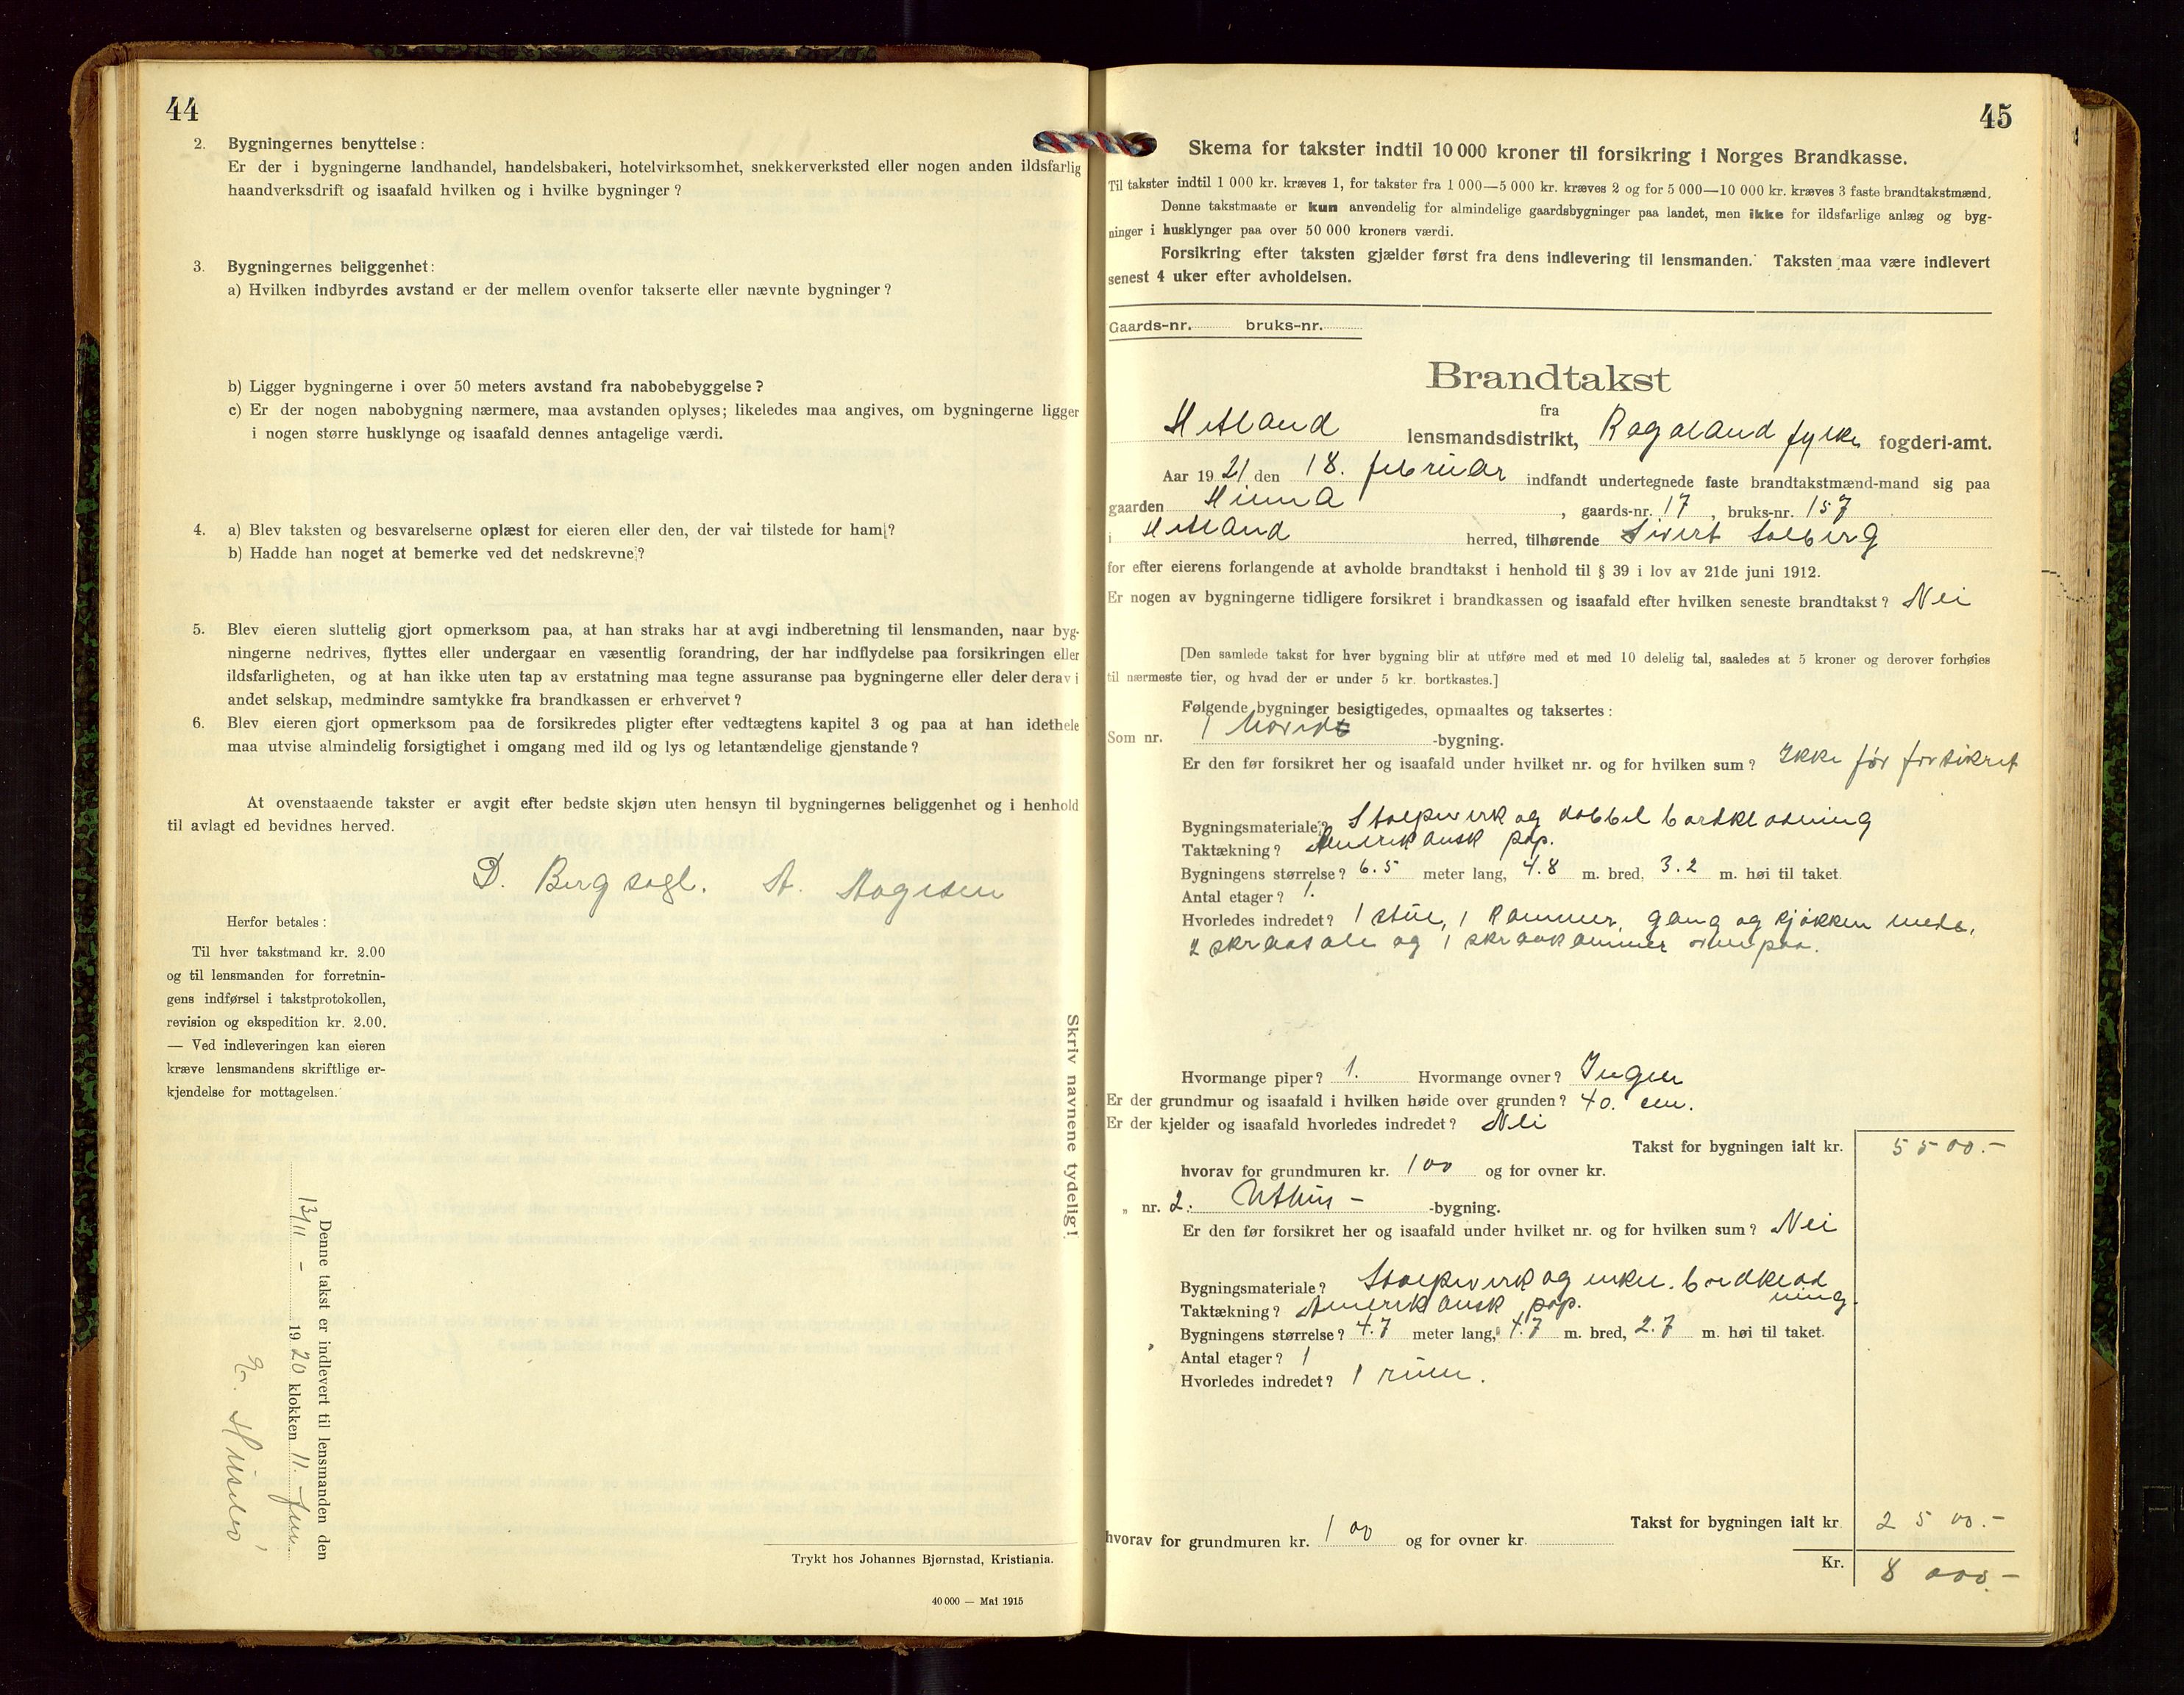 44
2. Bygningernes benyttelse:
Er der i bygningerne landhandel, handelsbakeri, hotelvirksomhet, snekkerverksted eller nogen anden ildsfarlig
haandverksdrift og isaafald hvilken og i hvilke bygninger?
3. Bygningernes beliggenhet:
a) Hvilken indbyrdes avstand er der mellem ovenfor takserte eller nævnte bygninger?
b) Ligger bygningerne i over 50 meters avstand fra nabobebyggelse?
c) Er der nogen nabobygning nærmere, maa avstanden oplyses; likeledes maa angives, om bygningerne ligger
i nogen større husklynge og isaafald dennes antagelige værdi.
4. a) Blev taksten og besvarelserne oplæst for eieren eller den, der var tilstede for ham?
b) Hadde han noget at bemerke ved det nedskrevne?
5. Blev eieren sluttelig gjort opmerksom paa, at han straks har at avgi indberetning til lensmanden, naar byg-
ningerne nedrives, flyttes eller undergaar en væsentlig forandring, der har indflydelse paa forsikringen eller
ildsfarligheten, og at han ikke uten tap av erstatning maa tegne assuranse paa bygningerne eller deler derav i
andet selskap, medmindre samtykke fra brandkassen er erhvervet?
6. Blev eieren gjort opmerksom paa de forsikredes pligter efter vedtægtens kapitel 3 og paa at han idethele
maa utvise almindelig forsigtighet i omgang med ild og lys og letantændelige gjenstande?
At ovenstaaende takster er avgit efter bedste skjøn uten hensyn til bygningernes beliggenhet og i henhold
til avlagt ed bevidnes herved.
D. Bergsagl. A. Aagesen
Herfor betales:
Til hver takstmand kr. 2.00
og til lensmanden for forretnin-
gens indførsel i takstprotokollen,
revision og ekspedition kr. 2.00.
— Ved indleveringen kan eieren
kræve lensmandens skriftlige er-
kjendelse for mottagelsen.
Skriv navnene tydelig!
Denne takst er indlevert til lensmanden den
13/11 - 1920 klokken 11. fm.
Trykt hos Johannes Bjørnstad, Kristiania.
40 000 — Mai 1915
45
Skema for takster indtil 10 000 kroner til forsikring i Norges Brandkasse.
Til takster indtil 1 000 kr. kræves 1, for takster fra 1 000—5 000 kr. kræves 2 og for 5 000—10 000 kr. kræves 3 faste brandtakstmænd.
Denne takstmaate er kun anvendelig for almindelige gaardsbygninger paa landet, men ikke for ildsfarlige anlæg og byg-
ninger i husklynger paa over 50 000 kroners værdi.
Forsikring efter taksten gjælder først fra dens indlevering til lensmanden. Taksten maa være indlevert
senest 4 uker efter avholdelsen.
Gaards-nr. bruks-nr.
Brandtakst
fra
Hetland lensmandsdistrikt, Rogaland fylke fogderi-amt.
Aar 1921 den 18. februar indfandt undertegnede faste brandtakstmænd-mand sig paa
gaarden Hinna, gaards-nr. 17, bruks-nr. 157
i Hetland herred, tilhørende Sivert Solberg
for efter eierens forlangende at avholde brandtakst i henhold til § 39 i lov av 21de juni 1912.
Er nogen av bygningerne tidligere forsikret i brandkassen og isaafald efter hvilken seneste brandtakst? Nei
[Den samlede takst for hver bygning blir at utføre med et med 10 delelig tal, saaledes at 5 kroner og derover forhøies
til nærmeste tier, og hvad der er under 5 kr. bortkastes.]
Følgende bygninger besigtigedes, opmaaltes og taksertes:
Som nr. 1 -bygning.
Er den før forsikret her og isaafald under hvilket nr. og for hvilken sum? Ikke før forsikret
Bygningsmateriale? Stolpeverk og dobbel bordklædning
Taktækning? Amerikansk pap.
Bygningens størrelse? 6.5 meter lang, 4.8 m. bred, 3.2 m. høi til taket.
Antal etager? 1.
Hvorledes indredet? 1 stue, 1 kammer, gang og kjøkken nede,
2 skraasale og 1 skraakammer ovenpaa.
Hvormange piper? 1. Hvormange ovner? Ingen
Er der grundmur og isaafald i hvilken høide over grunden? 40. cm.
Er der kjelder og isaafald hvorledes indredet? Nei
Takst for bygningen ialt kr. 5500.-
hvorav for grundmuren kr. 100 og for ovner kr.
„ nr. 2. Uthus - -bygning.
Er den før forsikret her og isaafald under hvilket nr. og for hvilken sum? Nei
Bygningsmateriale? Stolpeverk og enkel bordklæd
ning.
Taktækning? Amerikansk pap.
Bygningens størrelse? 4.7 meter lang, 4.7 m. bred, 2.7 m. høi til taket.
Antal etager? 1
Hvorledes indredet? 1 rum.
Takst for bygningen ialt kr. 2500.-
hvorav for grundmuren kr. 100 og for ovner kr.
Kr. 8 000.-